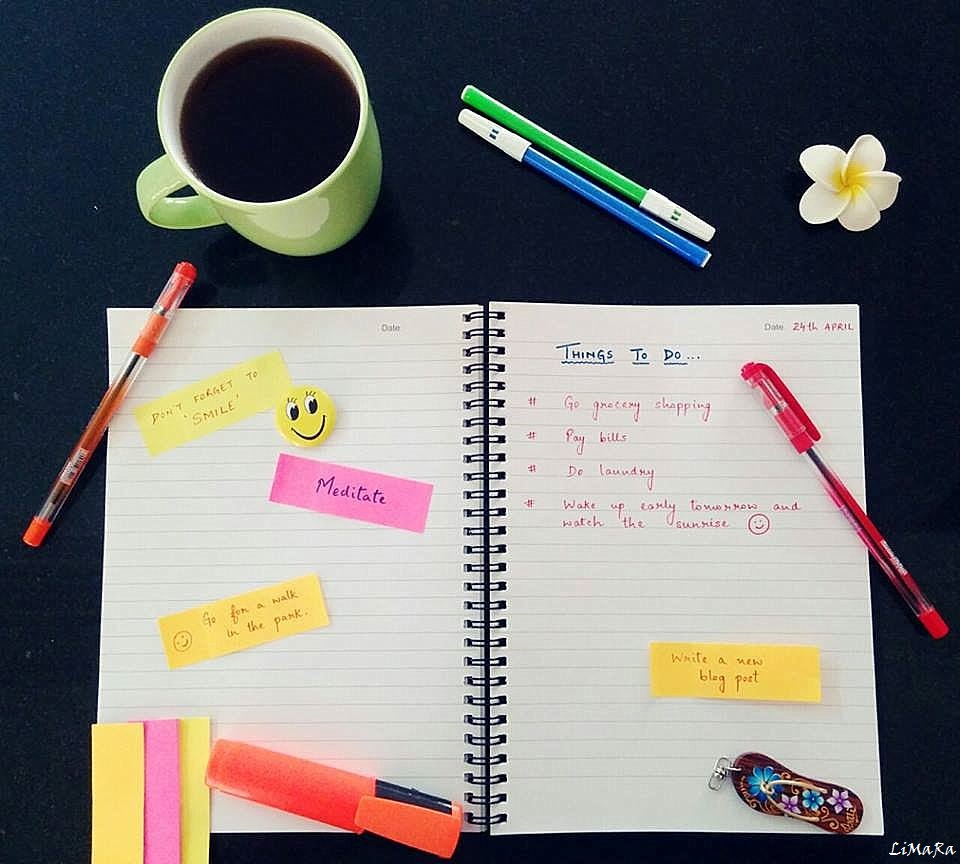 Date:
DON'T FORGET TO
'SMILE'
Meditate
Go for a walk
in the park.
Date: 24th APRIL
THINGS TO DO...
# Go grocery shopping
# Pay bills
# Do laundry
# Wake up early tomorrow and
watch the sunrise
Write a new
blog post
LiMaRa